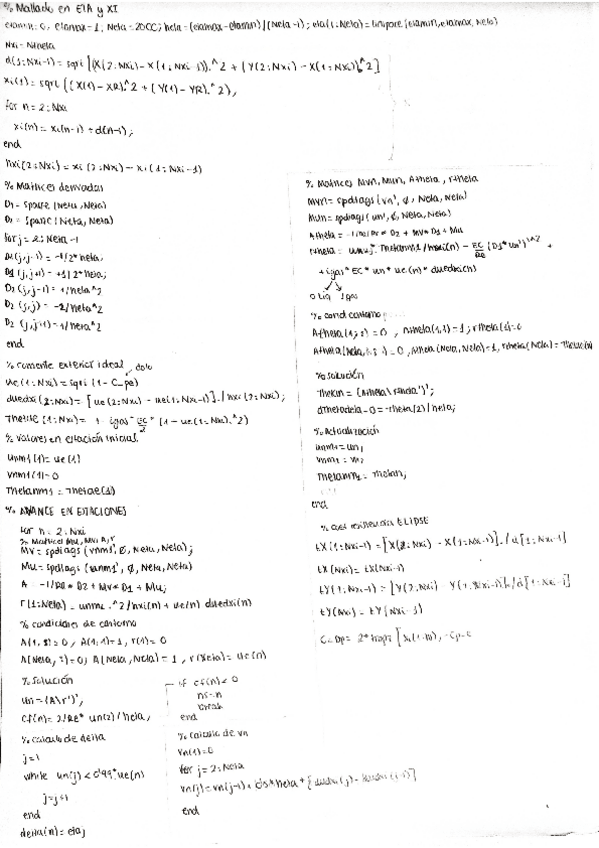 % Mallado en ETA y XI
etamin=0; etamax=1; Neta=2000; heta=(etamax-etamin)/(Neta-1); eta(1:Neta)=linspace(etamin,etamax,Neta)
Nxi=
d(1:Nxi-1)=sqrt[(X(2:Nxi)-X(1:Nxi-1)).^2+(Y(2:Nxi)-Y(1:Nxi-1)).^2]
xi(1)=sqrt((X(1)-XR).^2+(Y(1)-YR).^2);
for n=2:Nxi
xi(n)=xi(n-1)+d(n-1);
end
hxi(2:Nxi)=xi(2:Nxi)-xi(1:Nxi-1)
% Matrices derivadas
D1=sparse(Neta,Neta)
D2=sparse(Neta,Neta)
for j=2:Neta-1
D1(j,j-1)=-1/2*heta;
D1(j,j+1)=+1/2*heta;
D2(j,j-1)=1/heta^2
D2(j,j)=-2/heta^2
D2(j,j+1)=1/heta^2
end
% corriente exterior ideal, dato
ue(1:Nxi)=sqrt(1-C_pe)
duedxi(2:Nxi)=[ue(2:Nxi)-ue(1:Nxi-1)]./hxi(2:Nxi);
Thetae(1:Nxi)=1+igas*EC/2*(1-ue(1:Nxi).^2)
% valores en estación inicial
unm1(1)=ue(1)
vnm1(1)=0
Thetanm1=Thetae(1)
% AVANCE EN ESTACIONES
for n=2:Nxi
% Matrices Mu, Mv, A, r
Mv=spdiags(vnm1',0,Neta,Neta);
Mu=spdiags(unm1',0,Neta,Neta)
A=-1/Re*D2+Mv*D1+Mu;
r(1:Neta)=unm1.^2/hxi(n)+ue(n)duedxi(n)
% condiciones de contorno
A(1,:)=0, A(1,1)=1, r(1)=0
A(Neta,:)=0; A(Neta,Neta)=1, r(Neta)=ue(n)
% solución
un=(A\r')';
cf(n)=2/Re*un(2)/heta;
% calculo de delta
j=1
while un(j)<0'99*ue(n)
j=j+1
end
delta(n)=eta;
if cf(n)<0
ns=n
break
end
% calculo de vn
vn(1)=0
for j=2:Neta
end
% Matrices Mvn, Mun, Atheta, rtheta
Mvn=spdiags(vn',0,Neta,Neta)
Mun=spdiags(un',0,Neta,Neta)
+igas*EC*un*ue(n)*duedxi(n)
0 liq 1 gas
% cond contorno
Atheta(1,:)=0, Atheta(1,1)=1; rtheta(1)=0
Atheta(Neta,:)=0, Atheta(Neta,Neta)=1, rtheta(Neta)=Thetae(n)
% solución
Thetan=(Atheta\rtheta')';
% Actualización
unm1=un;
vnm1=vn;
Thetanm1=Thetan;
end
tX(1:Nxi-1)=[X(2:Nxi)-X(1:Nxi-1)]./d[1:Nxi-1]
tX(Nxi)=tX(Nxi-1)
tY(1:Nxi-1)=[Y(2:Nxi)-Y(1:Nxi-1)]./d[1:Nxi-1]
tY(Nxi)=tY(Nxi-1)